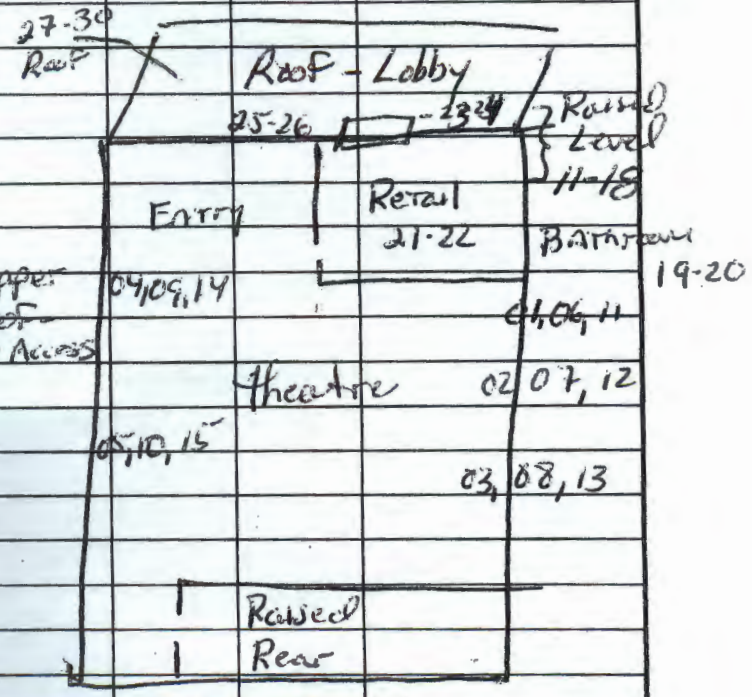 27-30
Roof
Roof - Lobby
25-26
-23-24
Raised
Level
11-18
Entry
Retail
21-22
Bathroom
19-20
04,09,14
Access
01,06,11
Theatre
02 07, 12
05,10,15
03, 08, 13
Raised
Rear